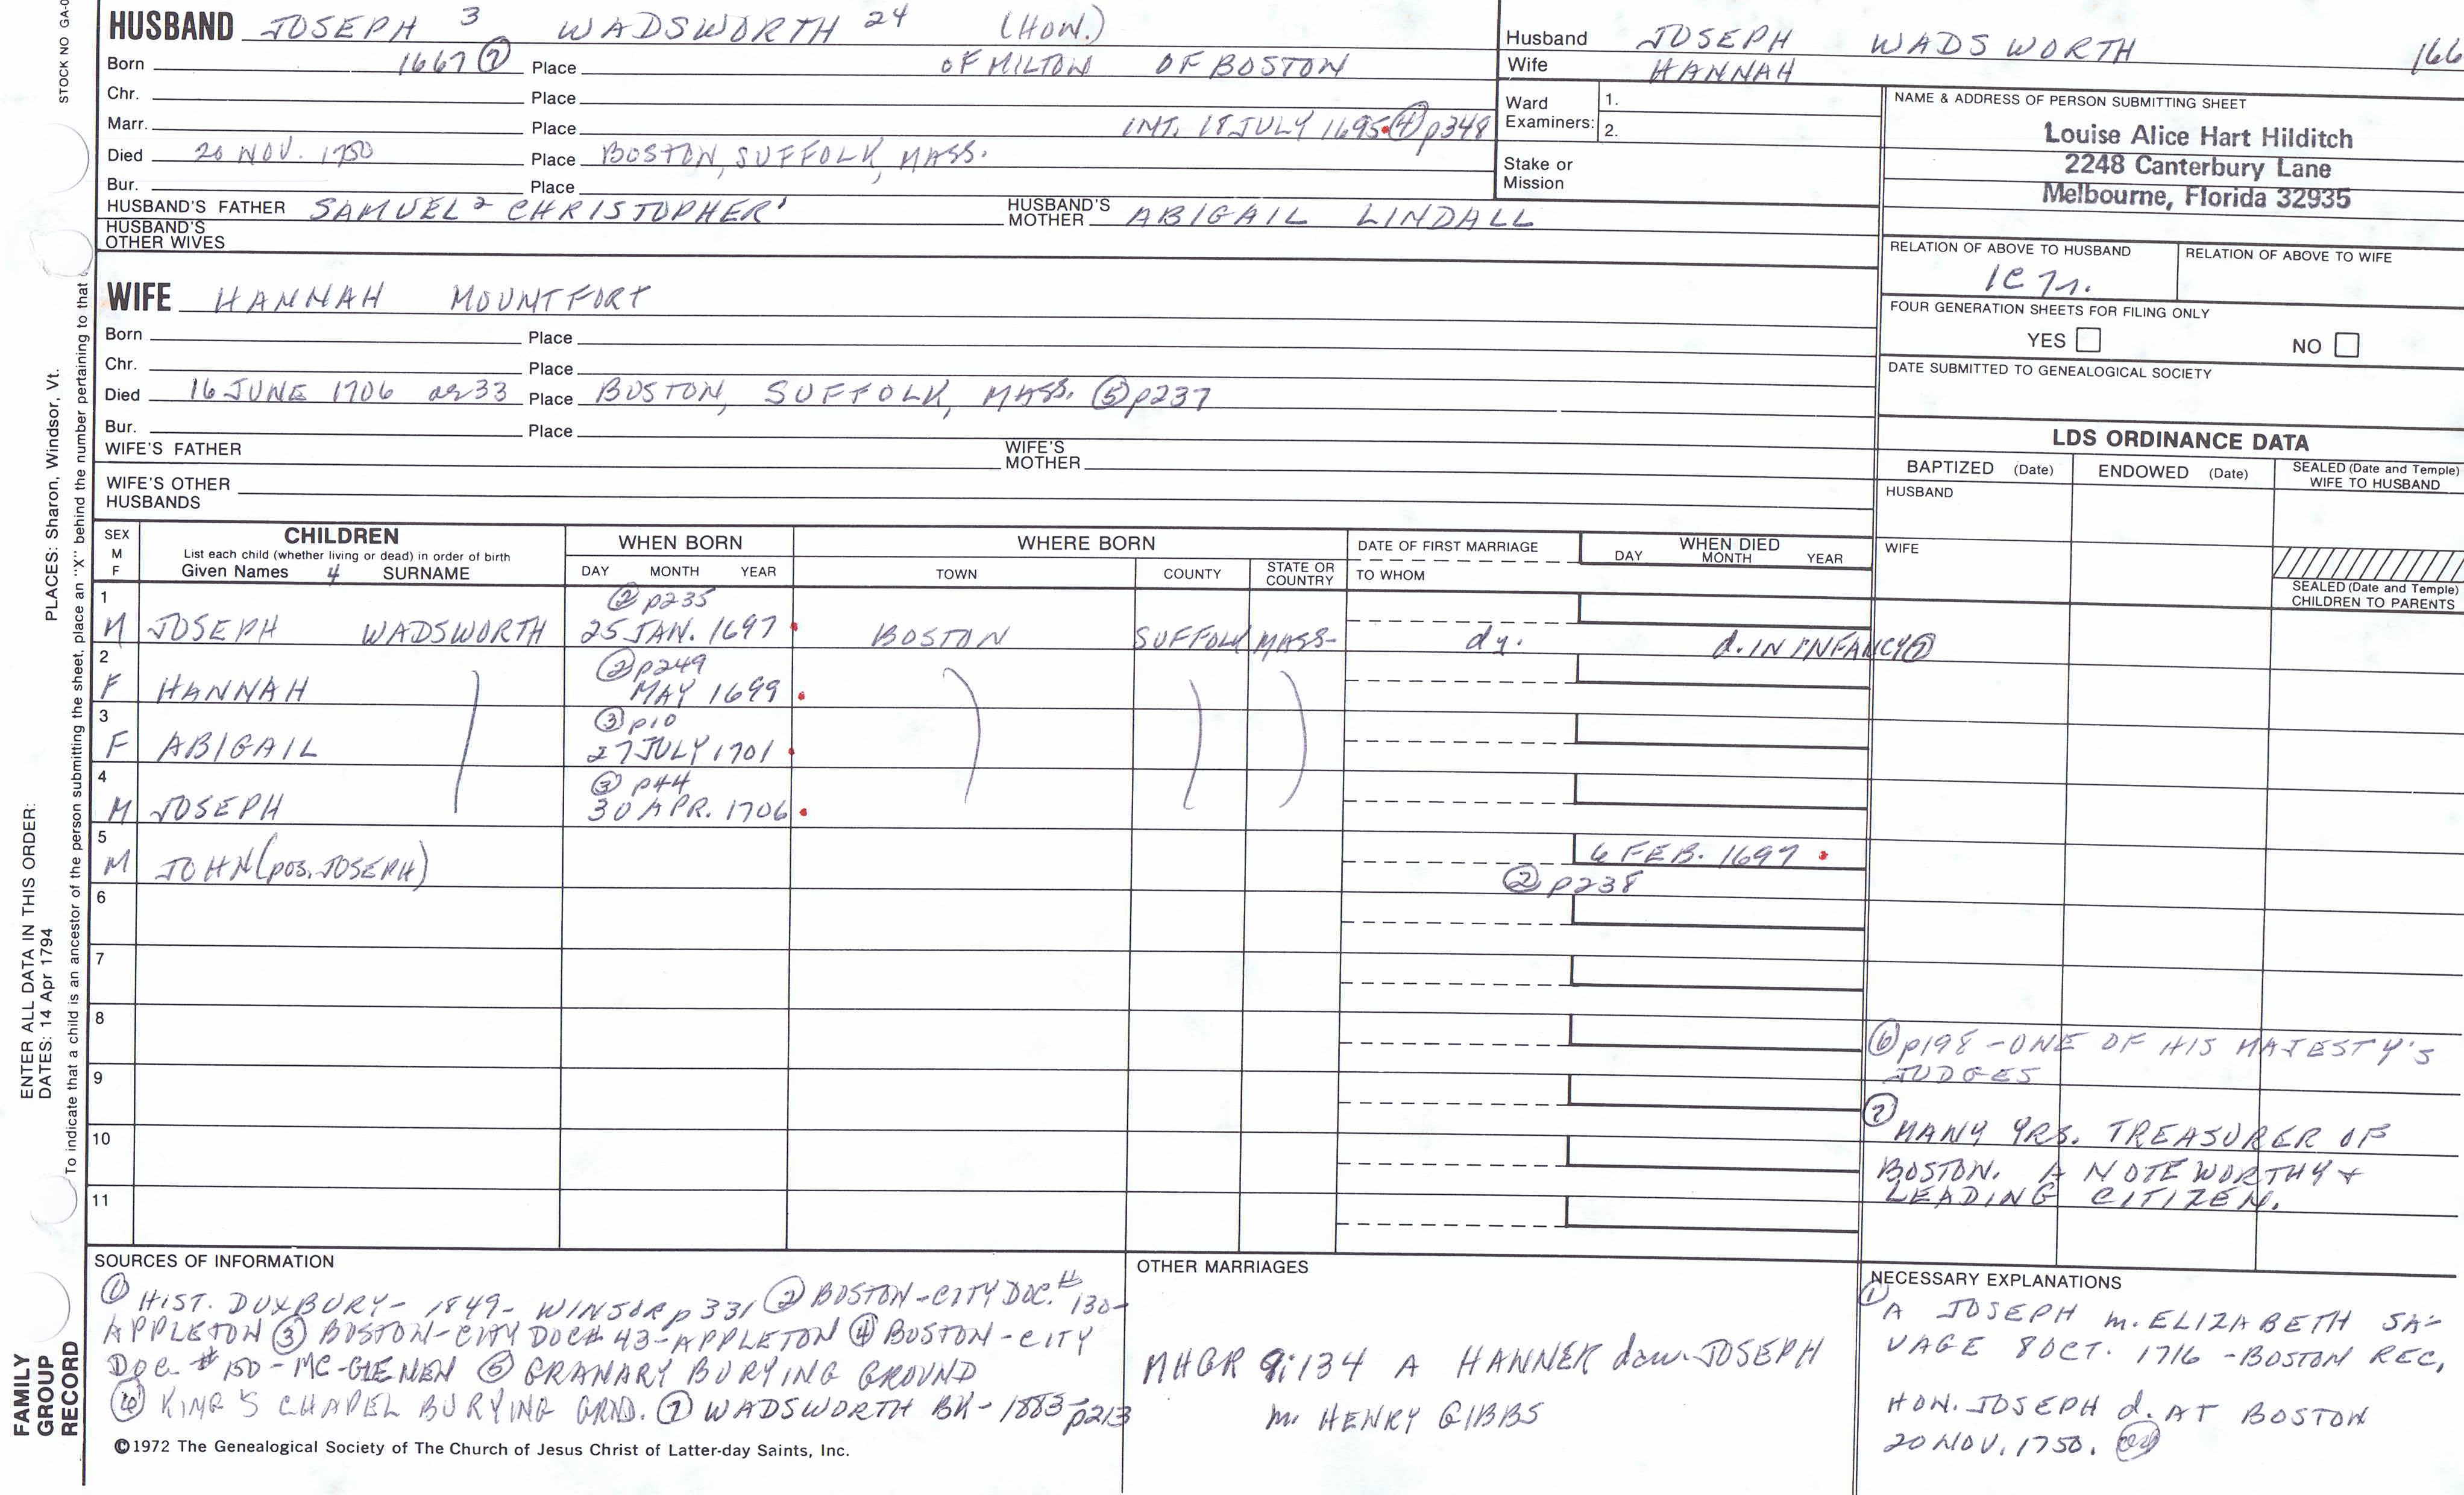 STOCK NO GA-0
PLACES: Sharon, Windsor, Vt.
ENTER ALL DATA IN THIS ORDER:
DATES: 14 Apr 1794
To indicate that a child is an ancestor of the person submitting the sheet, place an "X" behind the number pertaining to that
FAMILY
GROUP
RECORD
HUSBAND JOSEPH 3 WADSWORTH 24 (HON.)
Born 1667 ⑦ Place OF MILTON OF BOSTON
Chr. Place
Marr. Place INT. 18 JULY 1695 ④ p348
Died 20 NOV. 1750 Place BOSTON, SUFFOLK, MASS.
Bur. Place
HUSBAND'S FATHER SAMUEL 2 CHRISTOPHER 1 HUSBAND'S MOTHER ABIGAIL LINDALL
HUSBAND'S
OTHER WIVES
WIFE HANNAH MOUNTFORT
Born Place
Chr. Place
Died 16 JUNE 1706 ae 33 Place BOSTON, SUFFOLK, MASS. ⑤ p237
Bur. Place
WIFE'S FATHER WIFE'S MOTHER
WIFE'S OTHER
HUSBANDS
Husband JOSEPH WADSWORTH 166
Wife HANNAH
Ward
Examiners: 1.
2.
Stake or
Mission
NAME & ADDRESS OF PERSON SUBMITTING SHEET
Louise Alice Hart Hilditch
2248 Canterbury Lane
Melbourne, Florida 32935
RELATION OF ABOVE TO HUSBAND RELATION OF ABOVE TO WIFE
1C 7r.
FOUR GENERATION SHEETS FOR FILING ONLY
YES NO
DATE SUBMITTED TO GENEALOGICAL SOCIETY
LDS ORDINANCE DATA
BAPTIZED (Date) ENDOWED (Date) SEALED (Date and Temple) WIFE TO HUSBAND
HUSBAND
WIFE
SEALED (Date and Temple)
CHILDREN TO PARENTS
SEX
M
F
CHILDREN
List each child (whether living or dead) in order of birth
Given Names 4 SURNAME
WHEN BORN
DAY MONTH YEAR
WHERE BORN
TOWN COUNTY STATE OR COUNTRY
DATE OF FIRST MARRIAGE
TO WHOM
WHEN DIED
DAY MONTH YEAR
1 ② p235
M JOSEPH WADSWORTH 25 JAN. 1697 BOSTON SUFFOLK MASS- dy. d. IN INFANCY ⑦
2 ② p249
F HANNAH MAY 1699
3 ③ p10
F ABIGAIL 27 JULY 1701
4 ③ p44
M JOSEPH 30 APR. 1706
5
M JOHN (pos. JOSEPH) 6 FEB. 1697
② p238
6
7
8
9
10
11
⑥ p198 - ONE OF HIS MAJESTY'S
JUDGES
⑦
MANY YRS. TREASURER OF
BOSTON. A NOTEWORTHY +
LEADING CITIZEN.
SOURCES OF INFORMATION
① HIST. DUXBURY - 1849 - WINSOR p 331 ② BOSTON - CITY DOC. # 130 -
APPLETON ③ BOSTON - CITY DOC # 43 - APPLETON ④ BOSTON - CITY
DOC. # 150 - MC-GLENEN ⑤ GRANARY BURYING GROUND
⑥ KING'S CHAPEL BURYING GRND. ⑦ WADSWORTH BK - 1883 p213
©1972 The Genealogical Society of The Church of Jesus Christ of Latter-day Saints, Inc.
OTHER MARRIAGES
MHGR 9:134 A HANNER dau. JOSEPH
m. HENRY GIBBS
NECESSARY EXPLANATIONS
①
A JOSEPH m. ELIZABETH SA-
VAGE 8 OCT. 1716 - BOSTON REC,
HON. JOSEPH d. AT BOSTON
20 NOV. 1750.